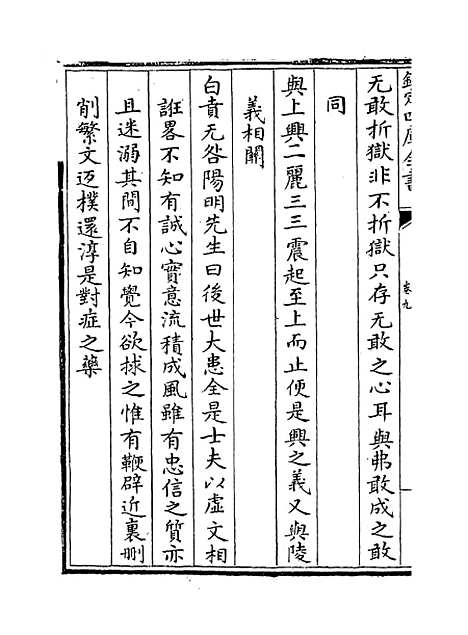 欽定四庫全書
卷九
无敢折獄非不折獄只存无敢之心耳與弗敢成之敢
同
與上興二麗三三震起至上而止便是興之義又與陵
義相關
白賁无咎陽明先生曰後世大患全是士夫以虛文相
誑畧不知有誠心實意流積成風雖有忠信之質亦
且迷溺其間不自知覺今欲捄之惟有鞭辟近裏刪
削繁文迈樸還淳是對症之藥